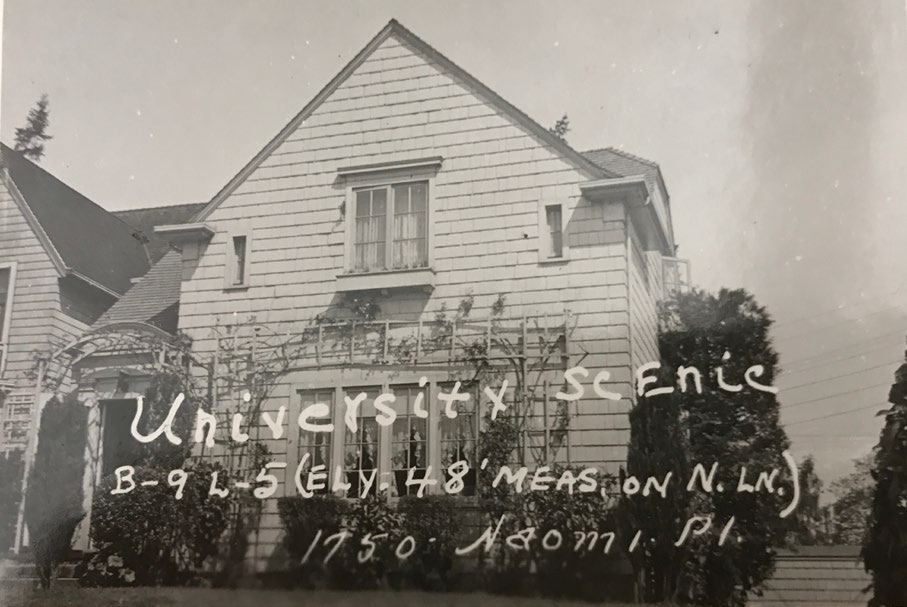 University Scenic
B-9 L-5 (ELY. 48' MEAS. ON N. LN.)
1750. Naomi. Pl.